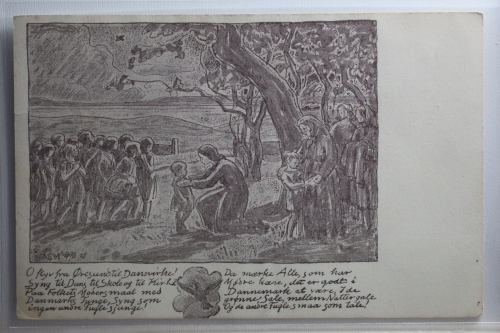 O flyv fra Øresund til Danevirke!
Syng til Dans, til Skole og til Kirke!
Paa Folkets Modersmaal med
Danmarks Tunge, Syng som
ingen andre Fugle sjunge.
Da mærke Alle, som har
kære, det er godt i
Dannemark at være, I de
grønne Sale, mellem Nattergale
Og de andre Fugle smaa som tale!